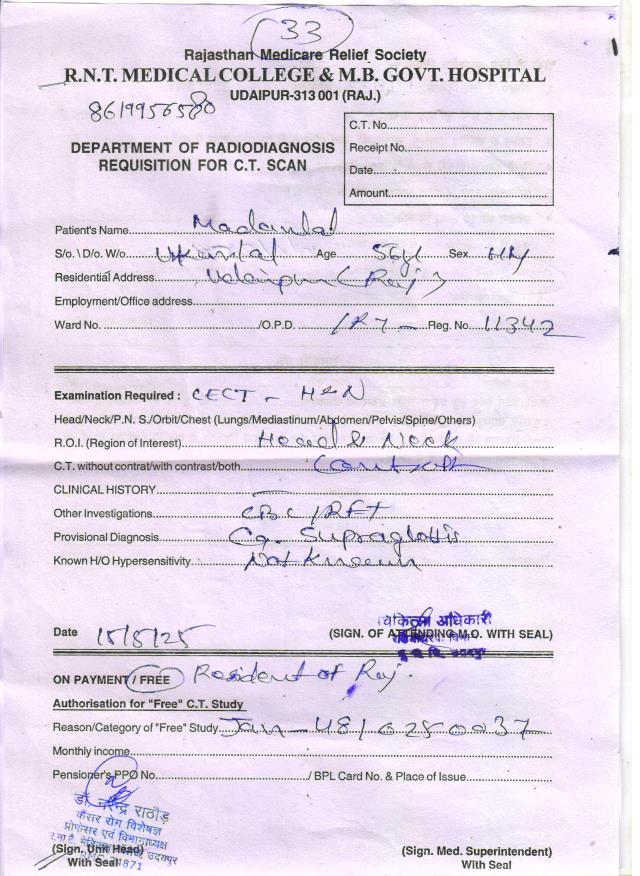 33
Rajasthan Medicare Relief Society
R.N.T. MEDICAL COLLEGE & M.B. GOVT. HOSPITAL
UDAIPUR-313 001 (RAJ.)
8619956580
DEPARTMENT OF RADIODIAGNOSIS
REQUISITION FOR C.T. SCAN
C.T. No.
Receipt No.
Date
Amount
Patient's Name Madanlal
S/o. \ D/o. W/o Age 56y Sex
Residential Address Udaipur (Raj)
Employment/Office address
Ward No. /O.P.D. / R7 Reg. No. 11342
Examination Required : CECT - H&N
Head/Neck/P.N. S./Orbit/Chest (Lungs/Mediastinum/Abdomen/Pelvis/Spine/Others)
R.O.I. (Region of Interest) Head & Neck
C.T. without contrat/with contrast/both Contrast
CLINICAL HISTORY
Other Investigations CBC / RFT
Provisional Diagnosis Ca. Supraglottis
Known H/O Hypersensitivity Not Known
चिकित्सा अधिकारी
Date 15/5/25 (SIGN. OF ATTENDING M.O. WITH SEAL)
ON PAYMENT / FREE Resident of Raj.
Authorisation for "Free" C.T. Study
Reason/Category of "Free" Study Jan - 4816280037
Monthly income
Pensioner's PPO No. / BPL Card No. & Place of Issue
डॉ. नरेन्द्र राठौड़
कैंसर रोग विशेषज्ञ
प्रोफेसर एवं विभागाध्यक्ष
उदयपुर
(Sign. Unit Head) (Sign. Med. Superintendent)
With Seal With Seal